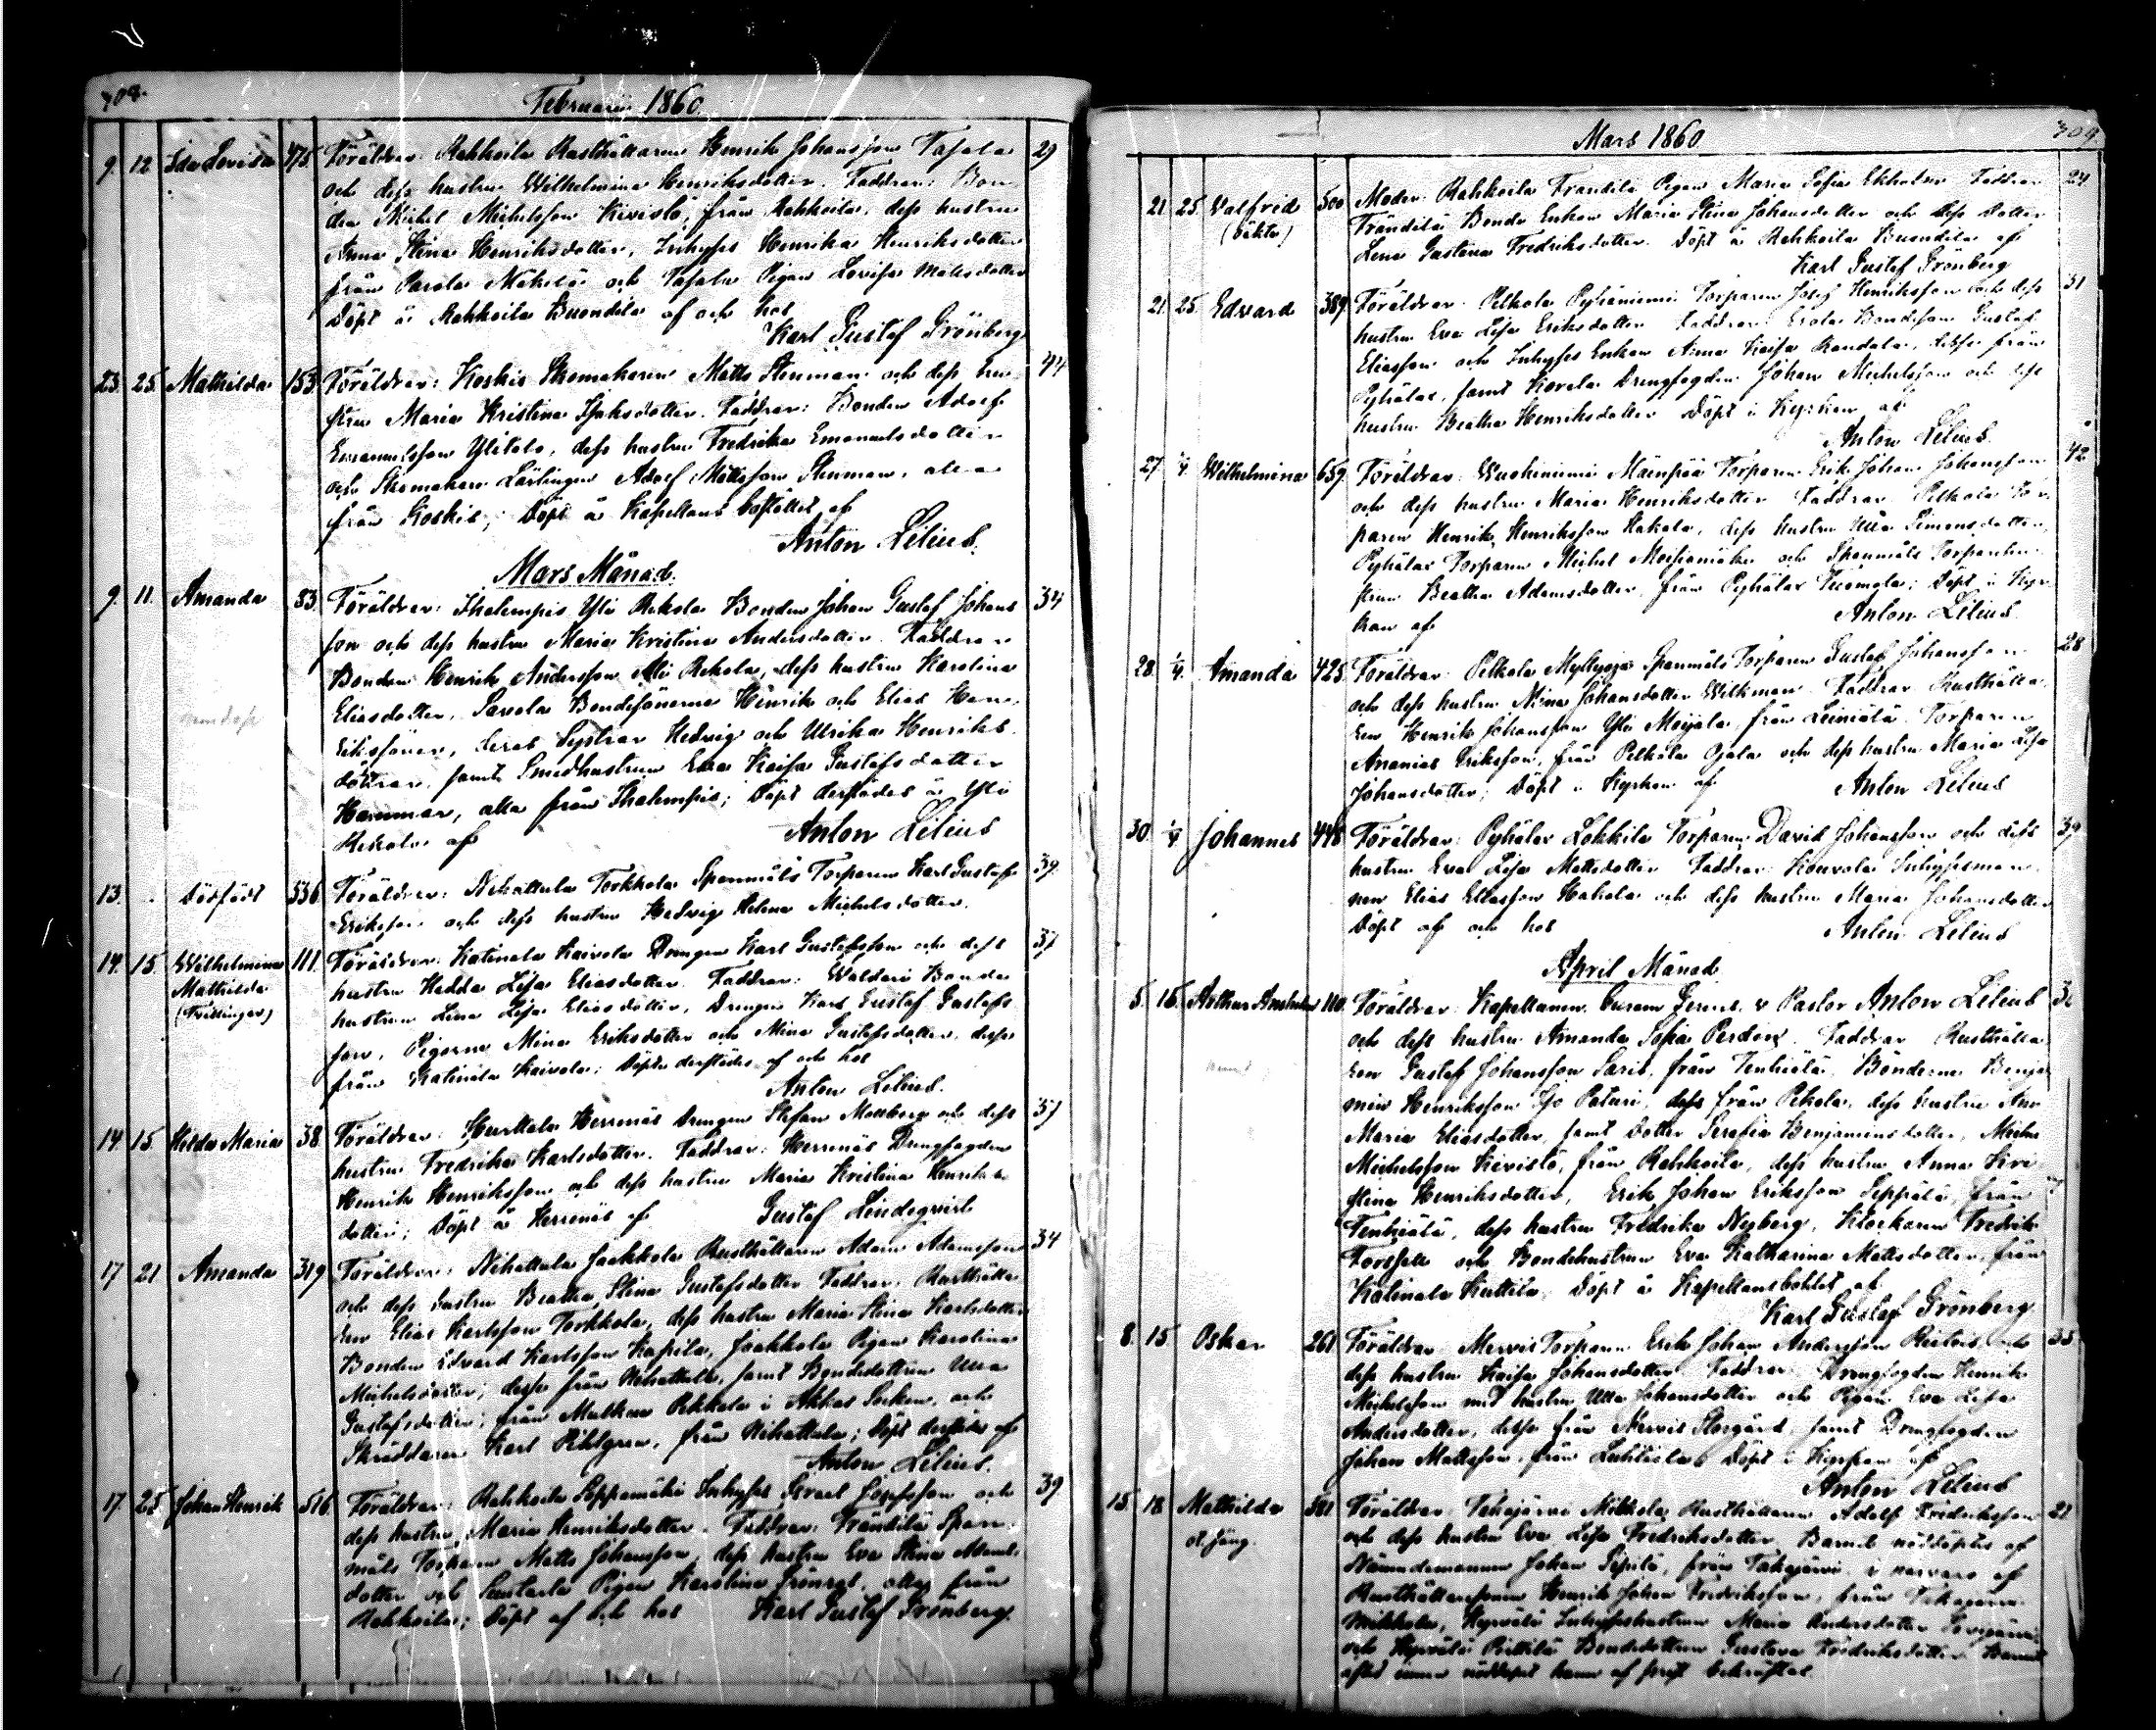 308.
Februarii 1860.
9. 12. Ida Lovisa 475. Föräldrar: Rahkoila Rusthållaren Henrik Johansson Tafala 29
och dess hustru Wilhelmina Henriksdotter. Faddrar: Bon-
den Michel Michelsson Kivistö, från Rahkoila, dess hustru
Anna Stina Henriksdotter, Inhyses Henrika Henriksdotter
från Parola Mäkelä och Tafala Pigan Lovisa Mattsdotter
Döpt å Rahkoila Buondila af och hos
Karl Gustaf Grönberg
23. 25. Mathilda 153. Föräldrar: Koskis Skomakaren Matts Stenman och dess hu- 44
stru Maria Kristina Isaksdotter. Faddrar: Bonden Adolf
Emanuelsson Ylitalo, dess hustru Fredrika Emanuelsdotter
och Skomakare Lärlingen Adolf Mattsson Stenman, alla
från Koskis; Döpt å Kapellans bostället af
Anton Lilius.
Mars Månad.
9. 11. Amanda 53. Föräldrar: Ihalempis Yli Rekola Bonden Johan Gustaf Johans- 34
son och dess hustru Maria Kristina Andersdotter. Faddrar
Bonden Henrik Andersson Ali Rekola, dess hustru Karolina
Eliasdotter, Savola Bondesönerne Henrik och Elias Hen-
rikssöner, deras Systrar Hedvig och Ulrika Henriks-
döttrar, samt Smedhustrun Eva Kaisa Gustafsdotter
Hammar, alla från Ihalempis; Döpt derstädes å Yli
Rekola af Anton Lilius
13. Dödfödt 336. Föräldrar: Nihattula Torkkola Spanmåls Torparen Karl Gustaf 39.
Eriksson och dess hustru Hedvig Helena Michelsdotter.
14. 15. Wilhelmina 111. Föräldrar: Katinala Kaivola Drengen Karl Gustafsson och dess 37
Mathilda hustru Hedda Lisa Eliasdotter. Faddrar: Bonde
(Tvillingar) hustrun Lena Lisa Eliasdotter, Drengen Karl Gustaf Gustafs-
son, Pigorne Mina Eriksdotter och Mina Gustafsdotter, desse
från Katinala Kaivola; Döpte derstädes af och hos
Anton Lilius.
14. 15. Hilda Maria 38. Föräldrar: Hurttala Herrenäs Drengen Stefan Mossberg och dess 37
hustru Fredrika Karlsdotter. Faddrar: Herrenäs Drengfogden
Henrik Henriksson och dess hustru Maria Kristina Henriks-
dotter; Döpt å Herrenäs af Gustaf Lindeqvist
17 21 Amanda 319 Föräldrar: Nihattula Jaakkola Rusthållaren Adam Adamsson 34
och dess hustru Beatha Stina Gustafsdotter Faddrar: Rusthålla-
ren Elias Karlsson Torkkola, dess hustru Maria Stina Karlsdotter
Bonden Edvard Karlsson Kapila, Jaakkola Pigan Karolina
Michelsdotter; desse från Nihattula, samt Bondedottren Ulla
Gustafsdotter, från Pekkola i Akkas Socken, och
Skräddaren Karl Pihlgren, från Nihattula; Döpt derstädes af
Anton Lilius.
17. 25. Johan Henrik 516. Föräldrar: Rahkoila Seppämäki Inhyses Israel Josefsson och 39
dess hustru Maria Henriksdotter. Faddrar: Frändilä Span-
måls Torparen Matts Johansson, dess hustru Eva Stina
dotter och Pigan Karolina Grönroos, alla från
Rahkoila; Döpt af och hos Karl Gustaf Grönberg.
Mars 1860 309
21. 25. Valfrid 500 Moder: Rahkoila Frändilä Pigan Maria Sofia Ekholm Faddrar 24
(oäkta) Frändilä Bonde Enkan Maria Stina Johansdotter och dess dotter
Lena Gustava Fredriksdotter. Döpt å Rahkoila Buondila af
Karl Gustaf Grönberg
21. 25. Edvard 389. Föräldrar: Pelkola Pyhäniemi Torparen Josef Henriksson och dess 31
hustru Eva Lisa Eriksdotter Faddrar: Erola Bondeson Gustaf
Eliasson och Inhyses Enkan Anna Kaisa Randala, desse från
Pyhälax, samt Karola Drengfogden Johan Michelsson och dess
hustru Beatha Henriksdotter Döpt i Kyrkan af
Anton Lilius.
27. 1/4. Wilhelmina 659. Föräldrar: Wuohiniemi Mäenpää Torparen Erik Johan Johansson 42
och dess hustru Maria Henriksdotter Faddrar: Pelkola Tor-
paren Henrik Henriksson Hakala, dess hustru Ulla Simonsdotter,
Pyhälax Torparen Michel och Spanmåls Torparehu-
strun Beatha Adamsdotter från Pyhälax; Döpt i Kyr-
kan af Anton Lilius.
28. 1/4. Amanda 425. Föräldrar: Pelkola Myllyoja Spanmåls Torparen Gustaf Johansson 28
och dess hustru Mina Johansdotter Wilkman Faddrar Rusthålla-
ren Henrik Johansson Yli Moijala, från Leiniälä. Torparen
Ananias Eriksson, från Pelkola Ojala och dess hustru Maria Lisa
Johansdotter; Döpt i Kyrkan af Anton Lilius
30. 1/4. Johannes 448. Föräldrar: Pyhälax Lokkila Torparen David Johansson och dess 39
hustru Eva Lisa Mattsdotter Faddrar: Konvola Inhysesman-
nen Elias Eliasson Hakala och dess hustru Maria Johansdotter
Döpt af och hos Anton Lilius
April Månad
5. 15. Arthur 110. Föräldrar: Kapellanen, Curam Gerens, v Pastor Anton Lilius
och dess hustru Amanda Sofia Perdén. Faddrar Rusthålla-
ren Gustaf Johansson Saris, från Tenhiälä, Bönderne Benja-
min Henriksson Iso Paturi, från Pekola, dess hustru Ann
Maria Eliasdotter, samt dotter Serafia Benjaminsdotter, Michel
Michelsson Kivistö, från Rahkoila, dess hustru Anna Kri-
stina Henriksdotter, Erik Johan Eriksson Seppälä, från
Tenhiälä, dess hustru Fredrika Nyberg, Klockaren Fredrik
Forssell och Bondehustrun Eva Katharina Mattsdotter, från
Katinala Kuttila; Döpt å Kapellansbohlet af
Karl Gustaf Grönberg
8. 15. Oskar 261 Föräldrar: Mervis Torparen Erik Johan Andersson och 33
dess hustru Kaisa Johansdotter Faddrar: Drengfogden Henrik
Michelsson med hustru Ulla Johansdotter och Pigan Eva Lisa
Andersdotter, desse från Mervis Storgård, samt Drengfogden
Johan Mattsson, från Luhtiala; Döpt i Kyrkan af
Anton Lilius
15. 18. Mathilda 381 Föräldrar: Takajärvi Mikkola Rusthållaren Adolf Fredriksson 21
och dess hustru Eva Lisa Fredriksdotter Barnet nöddöptes af
Nämndemannen Johan Sipilä, från Takajärvi i närvaro af
Rusthållaresonen Henrik Johan Fredriksson, från Takajärvi
Mikkola, Hyrvälä Inhyseshustrun Maria Andersdotter
och Hyrvälä Bondedottren Gustava Fredriksdotter Barnet